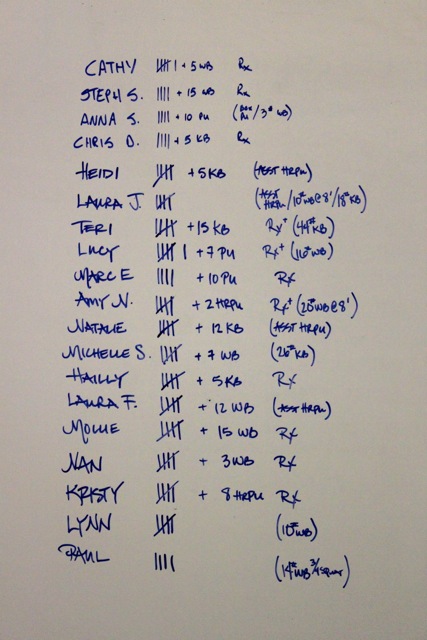 CATHY 卌 I + 5 WB Rx
STEPH S. IIII + 15 WB Rx
ANNA S. IIII + 10 PU / 3# WB)
CHRIS D. IIII + 5 KB Rx
HEIDI 卌 + 5 KB (ASST HRPU)
LAURA J. 卌 (ASST HRPU / 10# WB @ 8' / 18# KB)
TERI 卌 + 15 KB Rx+ (44# KB)
LUCY 卌 I + 7 PU Rx+ (16# WB)
MARC E IIII + 10 PU Rx
AMY N. 卌 + 2 HRPU Rx+ (20# WB @ 8')
NATALIE 卌 + 12 KB (ASST HRPU)
MICHELLE S. 卌 + 7 WB (26# KB)
HAILLY 卌 + 5 KB Rx
LAURA F. 卌 + 12 WB (ASST HRPU)
MOLLIE 卌 + 15 WB Rx
NAN 卌 + 3 WB Rx
KRISTY 卌 + 8 HRPU Rx
LYNN 卌 (10# WB)
PAUL IIII (14# WB 3/4 SQUAT)